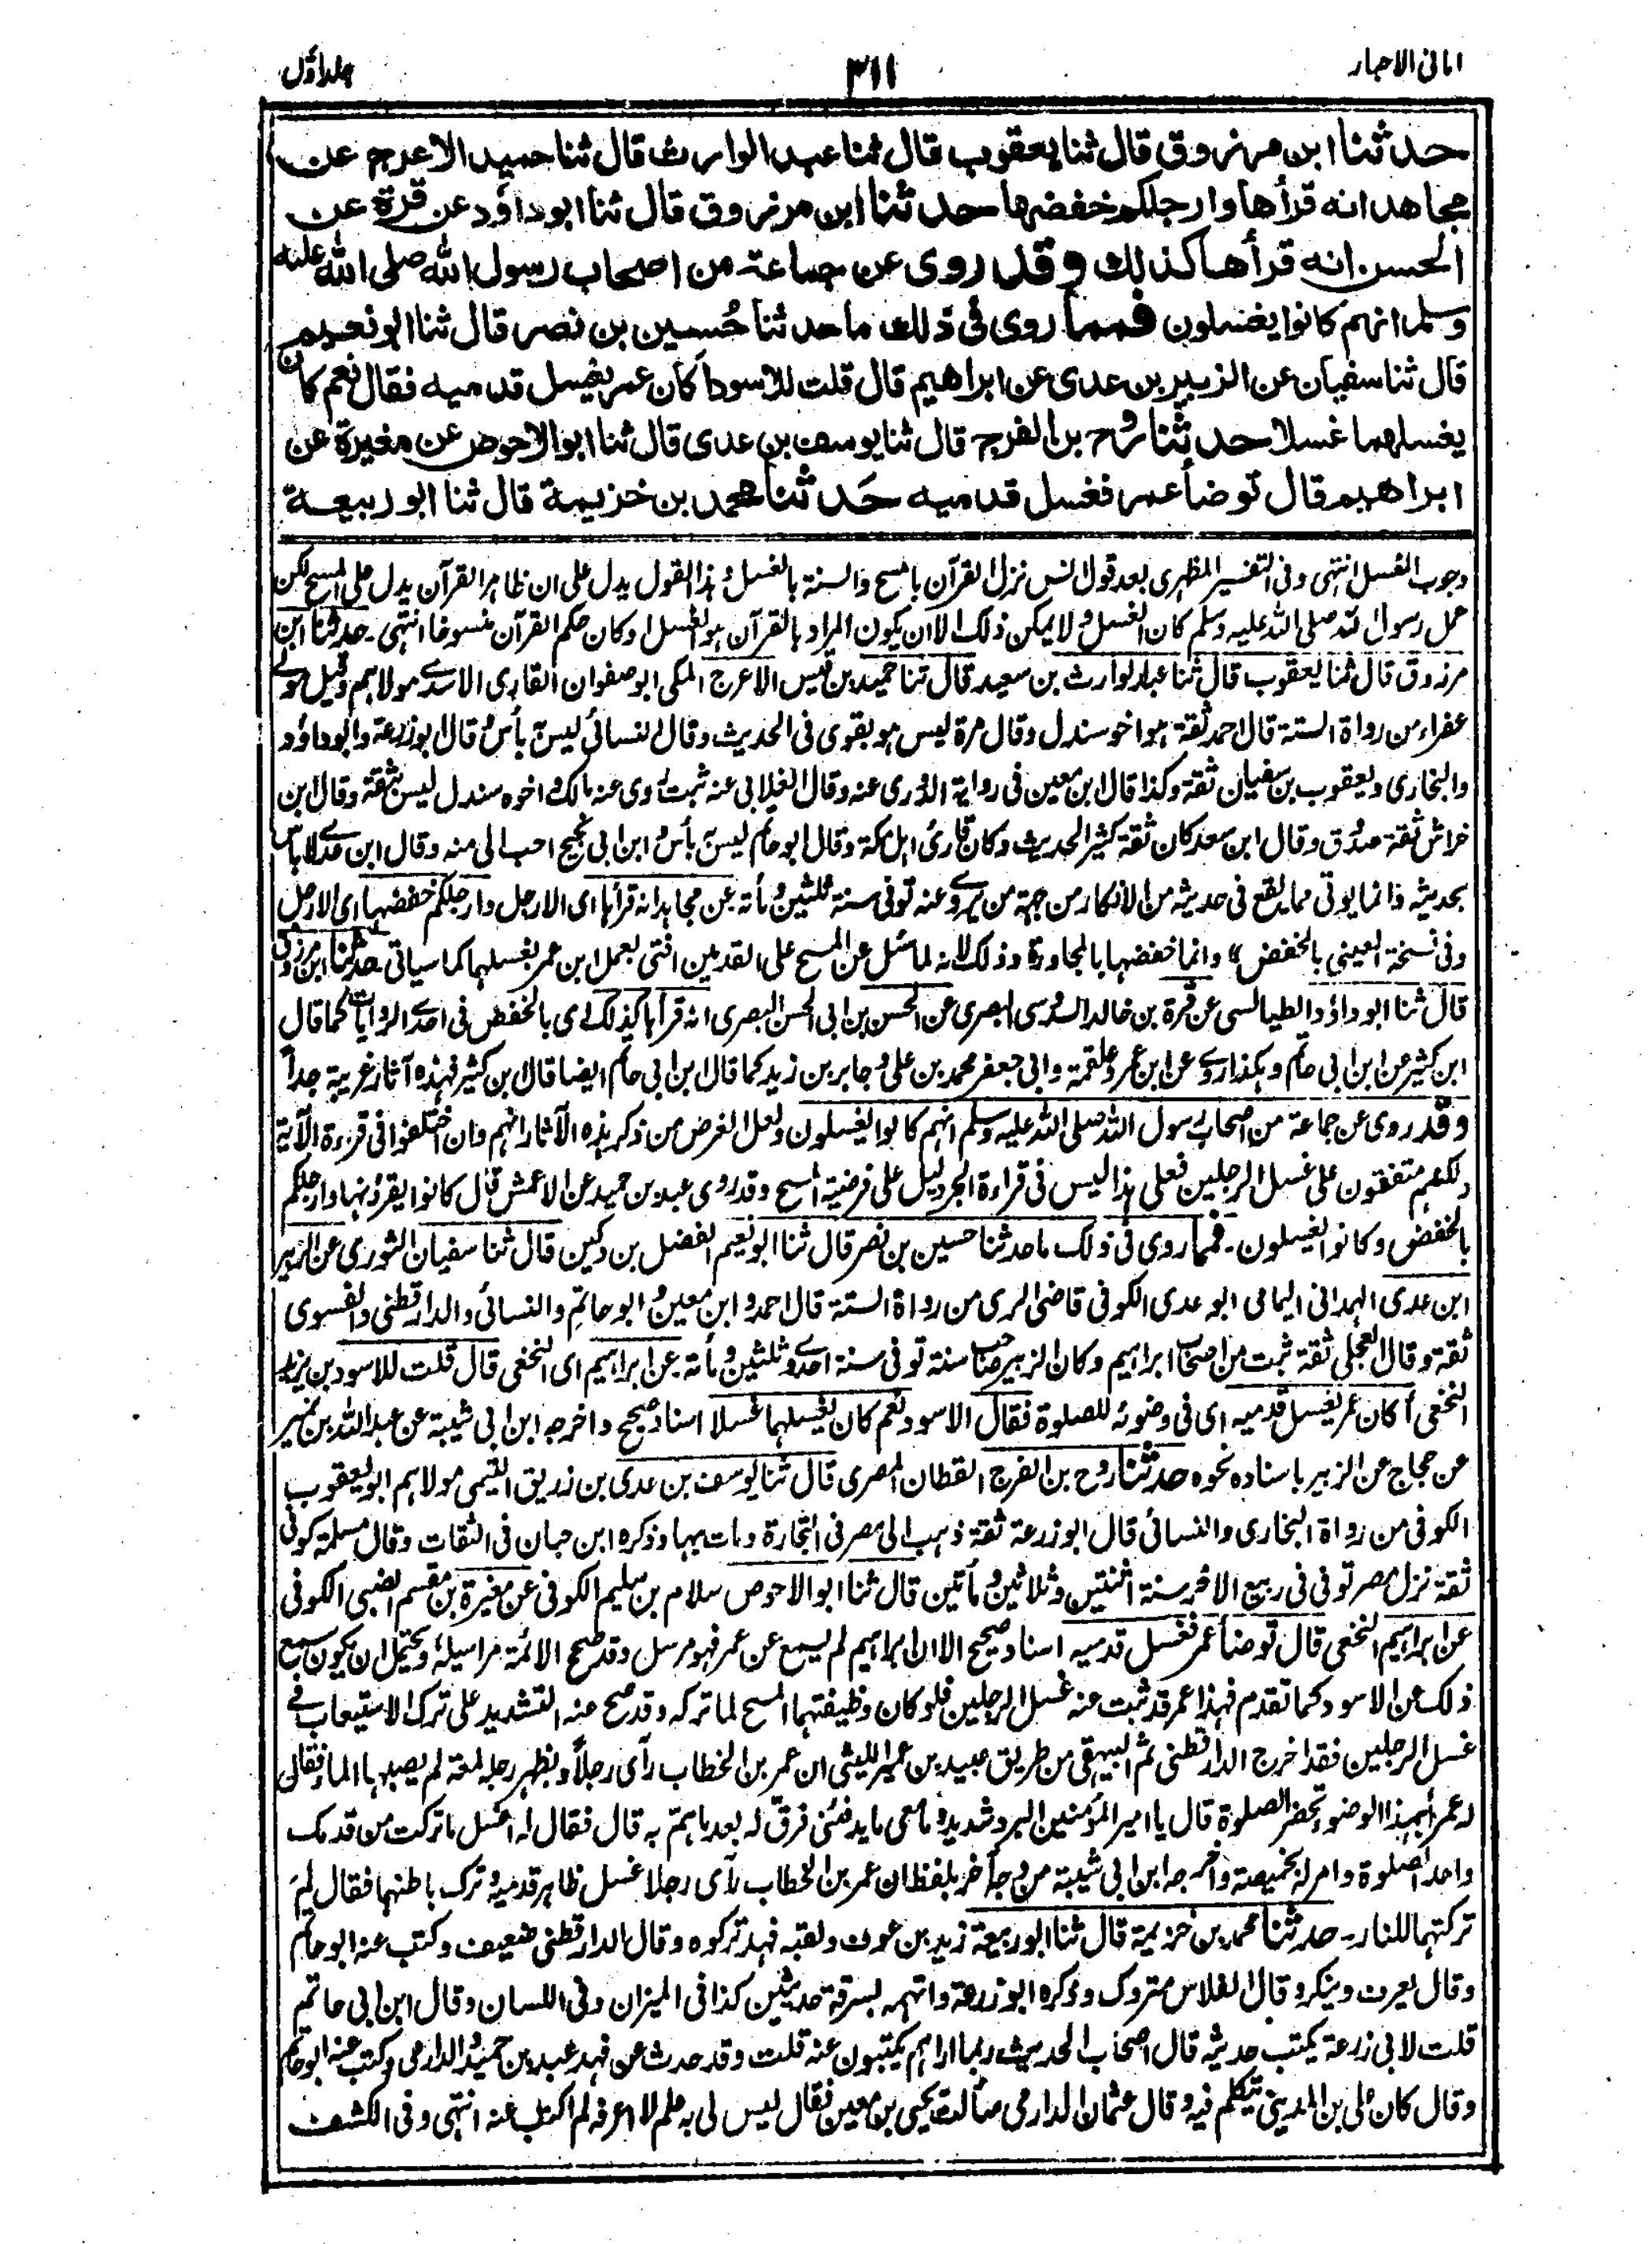 امانی الاحبار
٣١١
جلد اول
حدثنا ابن مرزوق قال ثنا يعقوب قال ثنا عبد الوارث قال ثنا حميد الاعرج عن
مجاهد انه قرأها وارجلكم خفضها حدثنا ابن مرزوق قال ثنا ابو داؤد عن قرة عن
الحسن انه قرأها كذلك وقد روى عن جماعة من اصحاب رسول الله صلى الله عليه
وسلم انهم كانوا يغسلون فمما روى فى ذلك ما حدثنا حسين بن نصر قال ثنا ابو نعيم
قال ثنا سفيان عن الزبير بن عدى عن ابراهيم قال قلت للاسود اكان عمر يغسل قدميه فقال نعم كان
يغسلهما غسلا حدثنا روح بن الفرج قال ثنا يوسف بن عدى قال ثنا ابو الاحوص عن مغيرة عن
ابراهيم قال توضأ عمر فغسل قدميه حدثنا محمد بن خزيمة قال ثنا ابو ربيعة
وجوب الغسل انتهى وفى التفسير المظهرى بعد قول انس نزل القرآن بالمسح والسنة بالغسل وهذا القول يدل على ان ظاهر القرآن يدل على المسح لكن
عمل رسول الله صلى الله عليه وسلم كان الغسل ولا يمكن ذلك الا ان يكون المراد بالقرآن هو الغسل او كان حكم القرآن منسوخا انتهى ـ حدثنا ابن
مرزوق قال ثنا يعقوب قال ثنا عبد الوارث بن سعيد قال ثنا حميد بن قيس الاعرج المكى ابو صفوان القارى الاسدى مولاهم وقيل مولى
عفراء من رواة الستة قال احمد ثقة هو اخو سندل وقال مرة ليس هو بقوى فى الحديث وقال النسائى ليس به بأس وقال ابو زرعة وابو داؤد
والبخارى ويعقوب بن سفيان ثقة وكذا قال ابن معين فى رواية الدورى عنه وقال الغلابى عنه ثبت روى عنه مالك واخوه سندل ليس بثقة وقال ابن
خراش ثقة صدوق وقال ابن سعد كان ثقة كثير الحديث وكان قارئ اهل مكة وقال ابو حاتم ليس به بأس وابن ابى نجيح احب الى منه وقال ابن عدى لا بأس
بحديثه وانما يوتى مما يقع فى حديثه من الانكار من جهة من يروى عنه توفى سنة ثلثين ومأته عن مجاهد انه قرأها اى الارجل وارجلكم خفضها اى الارجل
وفى نسخة العينى بالخفض وانما خفضها بالمجاورة وذلك لانه لما سئل عن المسح على القدمين افتى بعمل ابن عمر بغسلهما كما سياتى حدثنا ابن مرزوق
قال ثنا ابو داؤد الطيالسى عن قرة بن خالد السدوسى البصرى عن الحسن بن ابى الحسن البصرى انه قرأها كذلك اى بالخفض فى احدى الروايات كما قال
ابن كثير عن ابن ابى حاتم وهكذا روى عن ابن عمر وعلقمة وابى جعفر محمد بن على وجابر بن زيد كما قال ابن ابى حاتم ايضا قال ابن كثير فهذه آثار غريبة جدا
وقد روى عن جماعة من اصحاب رسول الله صلى الله عليه وسلم انهم كانوا يغسلون ولعل الغرض من ذكر هذه الآثار انهم وان اختلفوا فى قراءة الآية
ولكنهم متفقون على غسل الرجلين فعلى هذا ليس فى قراءة الجر دليل على فرضية المسح وقد روى عبد بن حميد عن الاعمش قال كانوا يقرؤنها وارجلكم
بالخفض وكانوا يغسلون ـ فمما روى فى ذلك ما حدثنا حسين بن نصر قال ثنا ابو نعيم الفضل بن دكين قال ثنا سفيان الثورى عن الزبير
ابن عدى الهمدانى اليامى ابو عدى الكوفى قاضى الرى من رواة الستة قال احمد وابن معين وابو حاتم والنسائى والدارقطنى والفسوى
ثقة وقال العجلى ثقة ثبت من اصحاب ابراهيم وكان الزبير صاحب سنة توفى سنة احدى وثلثين ومأته عن ابراهيم اى النخعى قال قلت للاسود بن يزيد
النخعى أكان عمر يغسل قدميه اى فى وضوئه للصلوة فقال الاسود نعم كان يغسلهما غسلا اسناده صحيح واخرجه ابن ابى شيبة عن عبد الله بن نمير
عن حجاج عن الزبير باسناده نحوه حدثنا روح بن الفرج القطان المصرى قال ثنا يوسف بن عدى بن زريق التيمى مولاهم ابو يعقوب
الكوفى من رواة البخارى والنسائى قال ابو زرعة ثقة ذهب الى مصر فى التجارة ومات بها وذكره ابن حبان فى الثقات وقال مسلمة كوفى
ثقة نزل مصر توفى فى ربيع الاخر سنة اثنتين وثلاثين ومأتين قال ثنا ابو الاحوص سلام بن سليم الكوفى عن مغيرة بن مقسم الضبى الكوفى
عن ابراهيم النخعى قال توضأ عمر فغسل قدميه اسناده صحيح الا ان ابراهيم لم يسمع عن عمر فهو مرسل وقد صحح الائمة مراسيله ويحتمل ان يكون سمع
ذلك عن الاسود كما تقدم فهذا عمر قد ثبت عنه غسل الرجلين فلو كان وظيفتهما المسح لما تركه وقد صح عنه التشديد على ترك الاستيعاب فى
غسل الرجلين فقد اخرج الدارقطنى ثم البيهقى من طريق عبيد بن عمير الليثى ان عمر بن الخطاب رآى رجلا وبظهر رجله لمعة لم يصبها الماء فقال
له عمر أبهذا الوضوء تحضر الصلوة قال يا امير المؤمنين البرد شديد وما معى ما يدفئنى فرق له بعد ما هم به قال فقال له اغسل ما تركت من قدمك
واعد الصلوة وامر له بخميصة واخرجه ابن ابى شيبة من وجه آخر بلفظ ان عمر بن الخطاب رآى رجلا غسل ظاهر قدميه وترك باطنهما فقال لم
تركتهما للنار ـ حدثنا محمد بن خزيمة قال ثنا ابو ربيعة زيد بن عوف ولقبه فهد تركوه وقال الدارقطنى ضعيف وكتب عنه ابو حاتم
وقال يعرف وينكر وقال الفلاس متروك وذكره ابو زرعة واتهمه بسرقة حديثين كذا فى الميزان وفى اللسان وقال ابن ابى حاتم
قلت لابى زرعة يكتب حديثه قال اصحاب الحديث ربما اراهم يكتبون عنه قلت وقد حدث عن فهد عبد بن حميد والدارمى وكتب عنه ابو حاتم
وقال كان على بن المدينى يتكلم فيه وقال عثمان الدارمى سألت يحيى بن معين فقال ليس لى به علم لا اعرفه لم اكتب عنه انتهى وفى الكشف